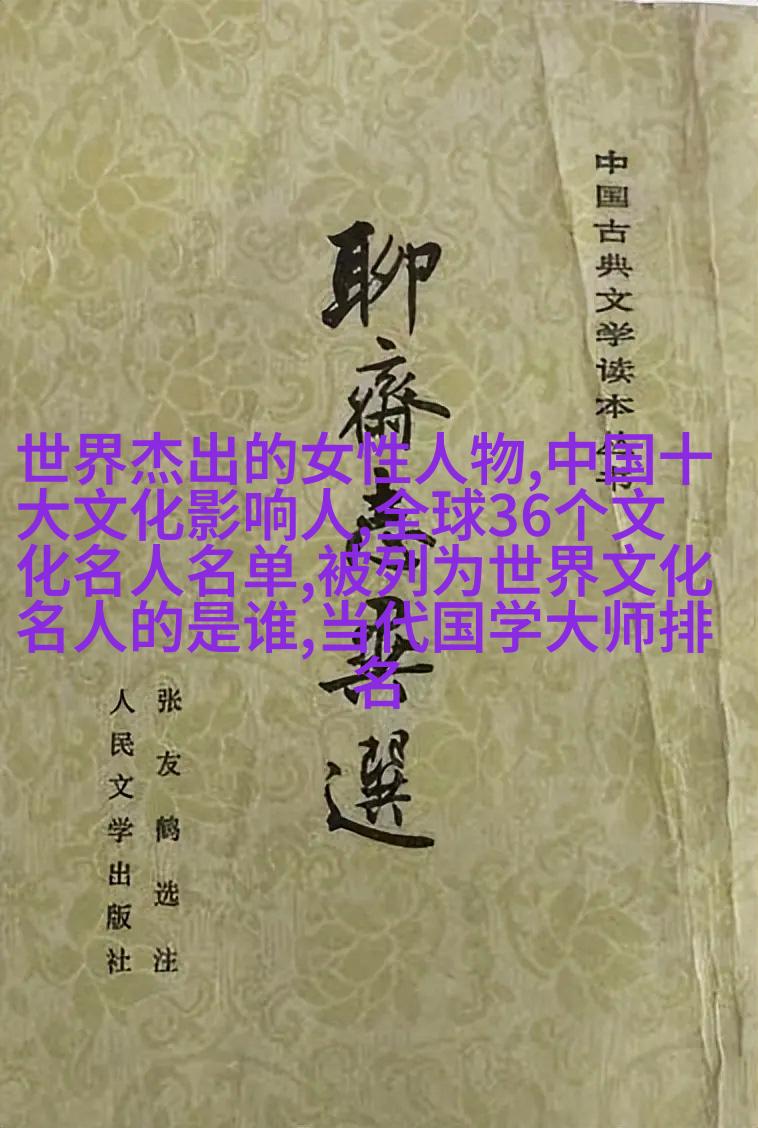 中国古典文学读本丛书
聊齋志異選
世界杰出的女性人物,中国十
大文化影响人,全球36个文
化名人名单,被列为世界文化
名人的是谁,当代国学大师排
名
张友鹤选注
人民文学出版社